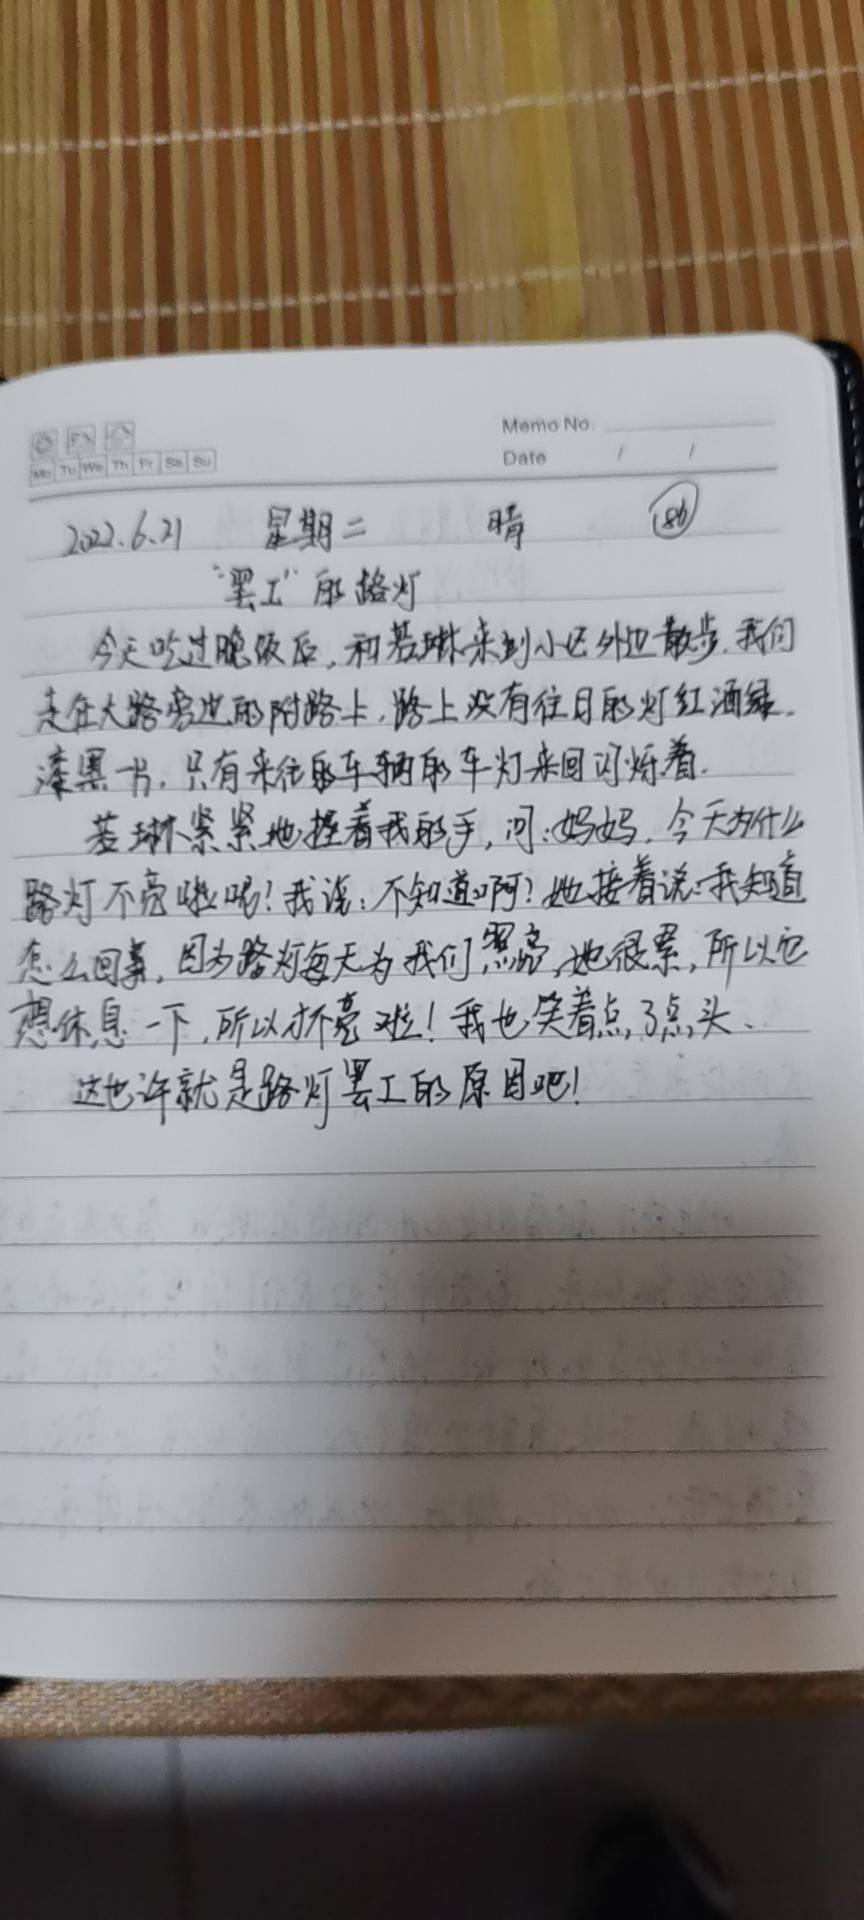 Memo No.
Mo Tu We Th Fr Sa Su
Date / /
2022.6.21 星期二 晴 186
“罢工”的路灯
今天吃过晚饭后,和若琳来到小区外边散步.我们
走在大路旁边的附路上,路上没有往日的灯红酒绿.
漆黑一片,只有来往的车辆的车灯来回闪烁着.
若琳紧紧地握着我的手,问:妈妈,今天为什么
路灯不亮啦呢!我说:不知道啊?她接着说:我知道
怎么回事,因为路灯每天为我们照亮,她很累,所以它
想休息一下,所以才不亮啦!我也笑着点了点头.
这也许就是路灯罢工的原因吧!